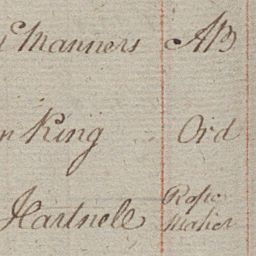 Manners AB
King Ord
Hartnell Rope
Maker